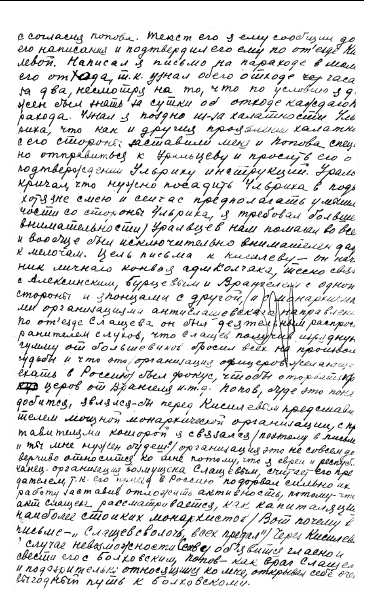 с согласия Попова. Текст его я ему сообщил до
его написания и подтвердил его ему по от'езде
левой. Написал я письмо на пароходе в мом
его отхода, т.к. узнал об его отходе чер часа
за два, несмотря на то, что по условию я д.
жен был знать за сутки об отходе каждого
рахода. Узнал я поздно из-за халатности Уль
риха, что как и другия проявления халатн
с его стороны заставили меня и Попова спец
но отправиться к Уральцеву и просить его о
подтверждении Ульриху инструкций. Урал
кричал что нужно посадить Ульриха в подв
хотя не смею и сейчас предполагать умыш
ности со стороны Ульриха, я требовал больше
внимательности) Уральцев нам помогал во все
и вообще был исключительно внимателен даж
к мелочам. Цель письма к Киселеву — он нач
ник личного конвоя адм Колчака, тесно связ
с Алексинским, Бурцевым и Врангелем с одной
стороны и японцами с другой,
ми организациями антислащевского направлени
по от'езде Слащева он был деятельным распрос
ранителем слухов, что Слащев получив изрядную
сумму от большевиков бросил всех на произвол
судьбы и что это, организация офицеров желающ
ехать в Россию был фокус, чтобы оторвать
церов от Врангеля и.т.д. Попов, буде это пона
добится, являлся-бы перед Киселевым представи
телем мощной монархической организации, с пр
тавителями которой я связался (поэтому в письм
и "ты мне нужен будешь", организация это не совсем до
верчиво относится ко мне потому, что я еврей и республ
канец. организация возмущена Слащевым, считает его пред
дателем, т.к. его приезд в Россию подорвал сильно их
работу, заставив отложить активность, потому-что
акт Слащева рассматривается, как капитуляция
наиболее стойких монархистов) Вот почему в
письме — "Слащев сволочь, всех предал") Через Киселева
случае невозможности об'явится гласно и
свести его с Волковским, Попов – как враг Слащева
и подозрительно относящийся ко мне, открывал себе очен
выгодный путь к Волковскому.